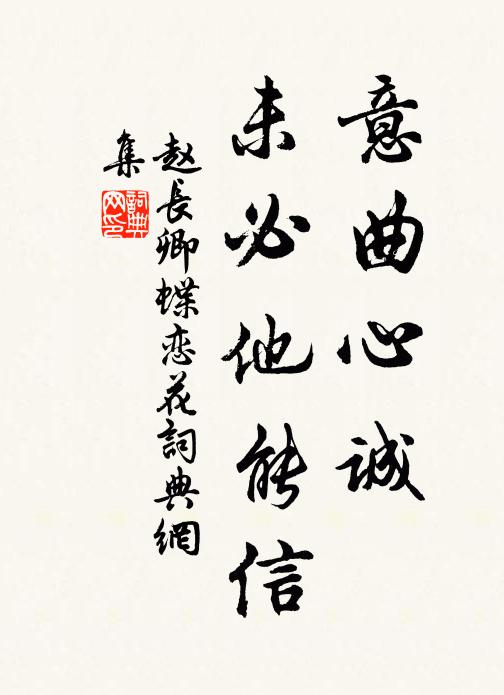 意曲心诚
未必他能信
赵長卿蝶恋花詞典網
集
詞典
网印